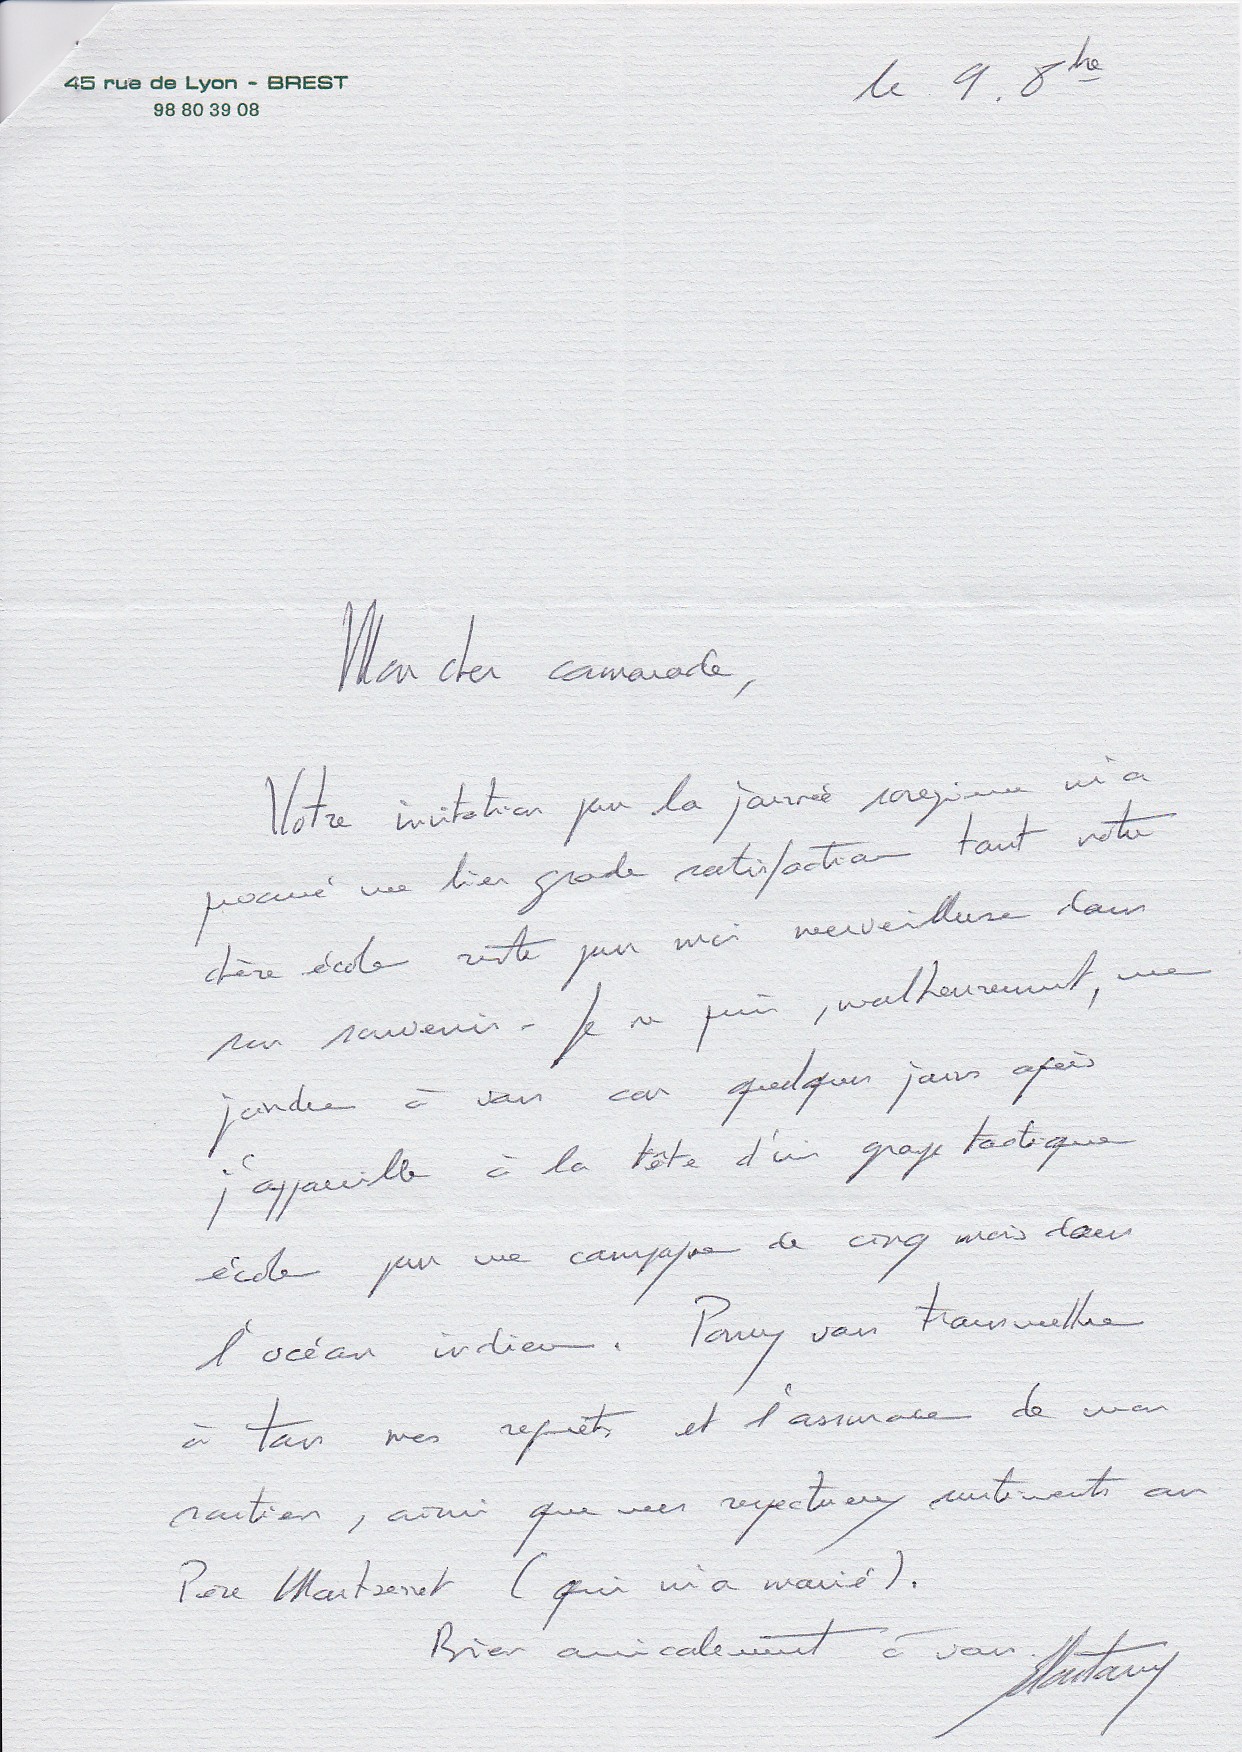 45 rue de Lyon - BREST
98 80 39 08
le 9. 8bre
Mon cher camarade,
Votre invitation pour la journée sorézienne m'a
procuré une bien grande satisfaction tant notre
chère école reste pour moi merveilleuse dans
son souvenir - Je ne puis, malheureusement, me
joindre à vous car quelques jours après
j'appareille à la tête d'un groupe tactique
école pour une campagne de cinq mois dans
l'océan indien. Pouvez vous transmettre
à tous mes regrets et l'assurance de mon
soutien, ainsi que mes respectueux sentiments au
Père Montserret (qui m'a marié).
Bien amicalement à vous